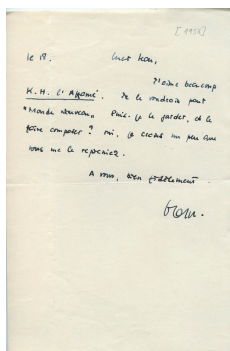 [1955]
le 18.
J'aime beaucoup
K.H. l'Affamé. Je le voudrais pour
"Monde Nouveau". Puis-je le garder, et le
faire composer ? Oui, je crains un peu que
vous me le repreniez.
A vous, bien fidèlement.